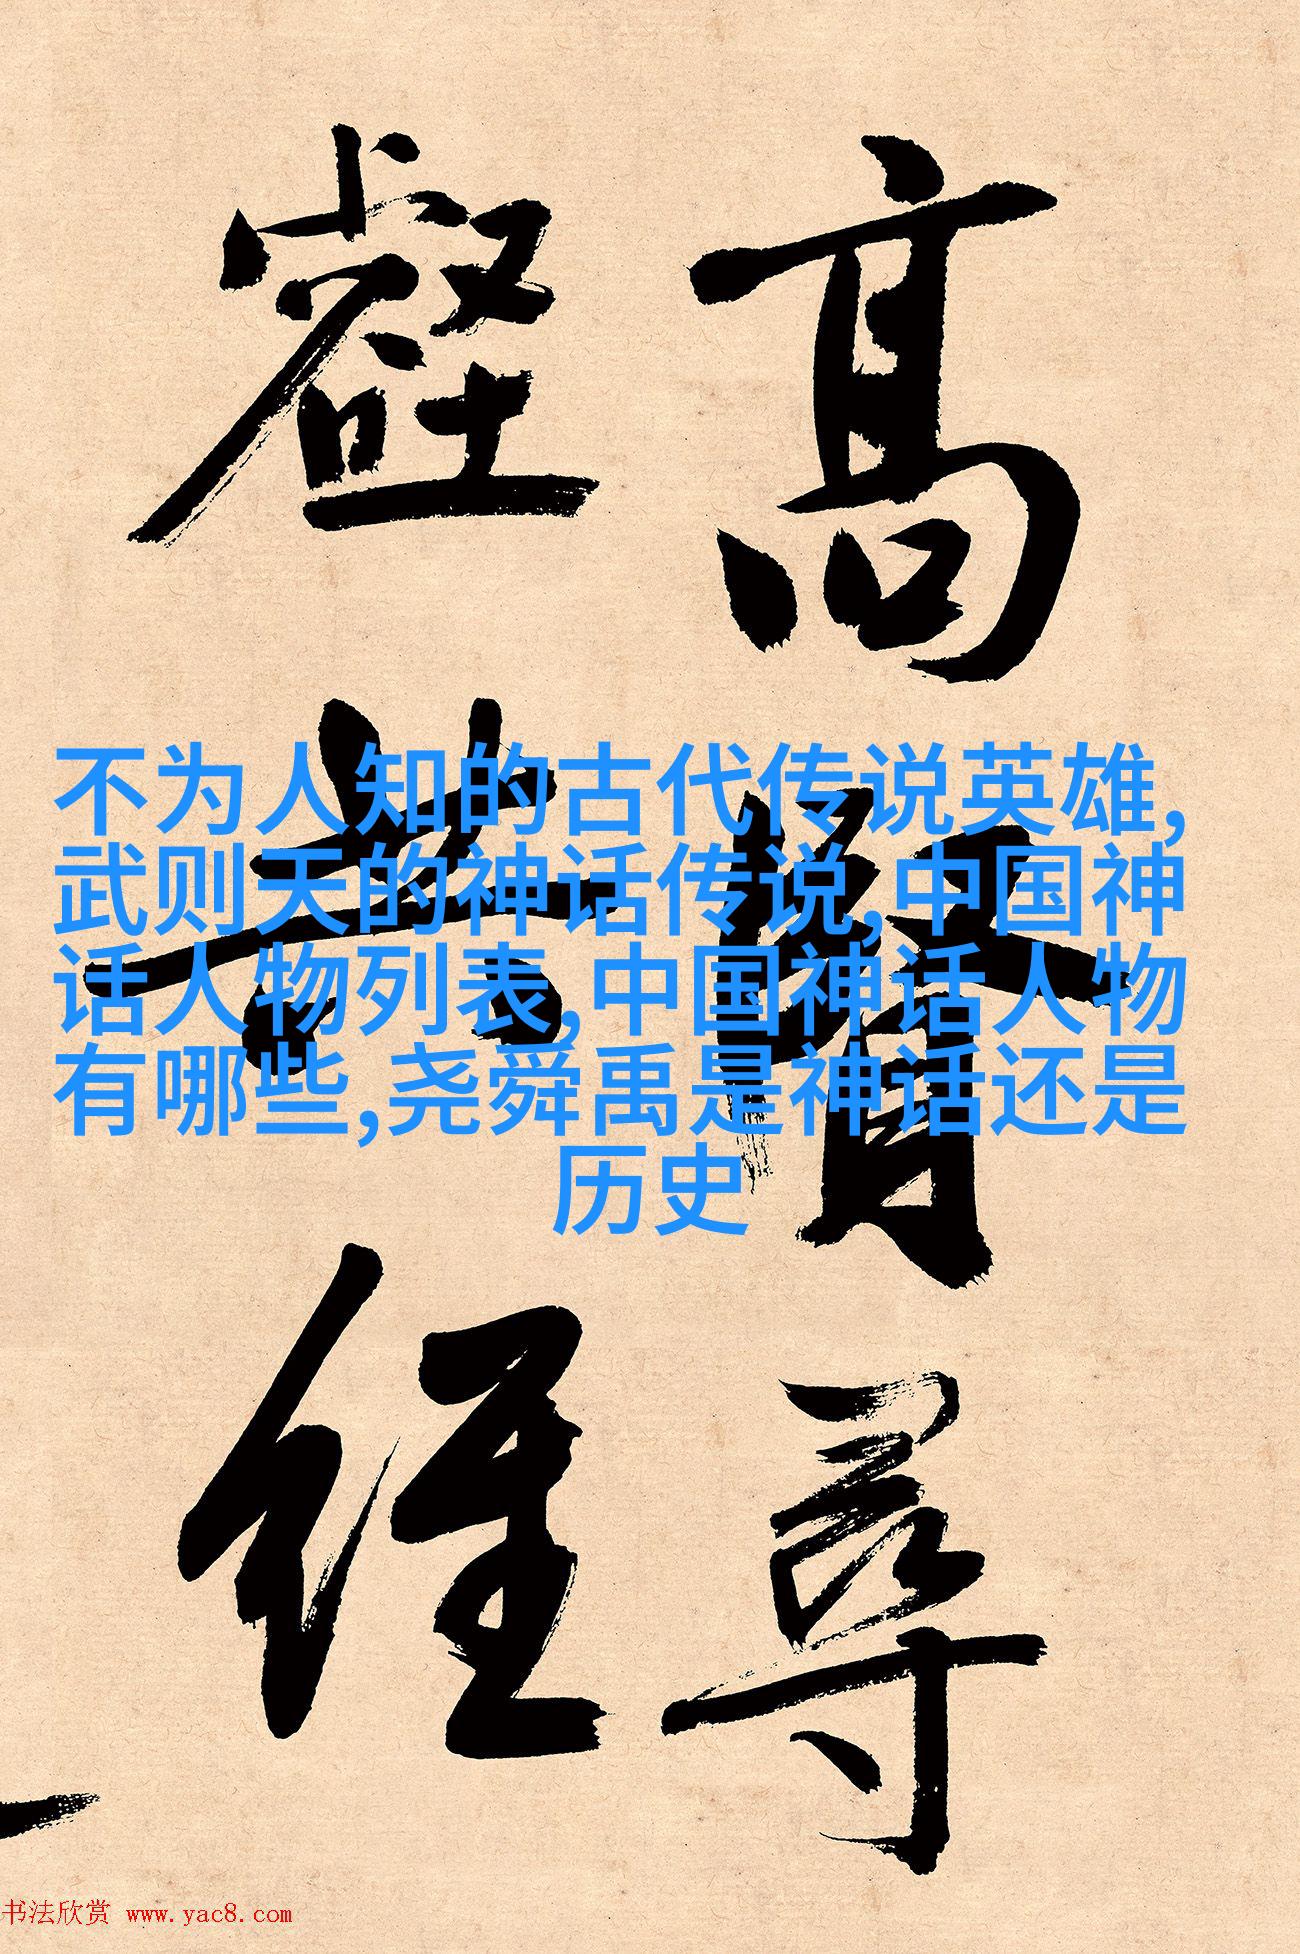 高賢尋
共經
不为人知的古代传说英雄,
武则天的神话传说,中国神
话人物列表,中国神话人物
有哪些,尧舜禹是神话还是
历史
书法欣赏 www.yac8.com